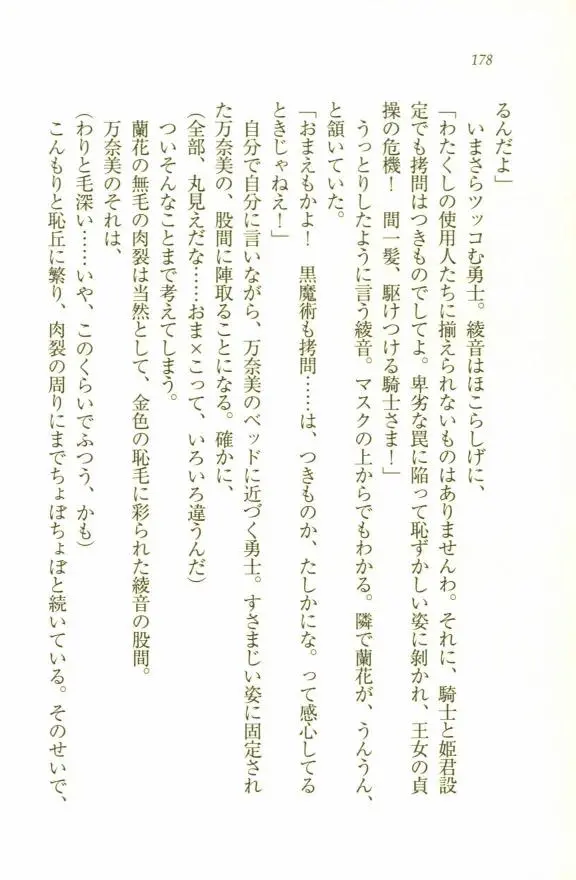 178
るんだよ」
いまさらツッコむ勇士。綾音はほこらしげに、
「わたくしの使用人たちに揃えられないものはありませんわ。それに、騎士と姫君設
定でも拷問はつきものでしてよ。卑劣な罠に陥って恥ずかしい姿に剝かれ、王女の貞
操の危機！　間一髪、駆けつける騎士さま！」
うっとりしたように言う綾音。マスクの上からでもわかる。隣で蘭花が、うんうん、
と頷いていた。
「おまえもかよ！　黒魔術も拷問……は、つきものか、たしかにな。って感心してる
ときじゃねえ！」
自分で自分に言いながら、万奈美のベッドに近づく勇士。すさまじい姿に固定され
た万奈美の、股間に陣取ることになる。確かに、
（全部、丸見えだな……おま×こって、いろいろ違うんだ）
ついそんなことまで考えてしまう。
蘭花の無毛の肉裂は当然として、金色の恥毛に彩られた綾音の股間。
万奈美のそれは、
（わりと毛深い……いや、このくらいでふつう、かも）
こんもりと恥丘に繁り、肉裂の周りにまでちょぼちょぼと続いている。そのせいで、